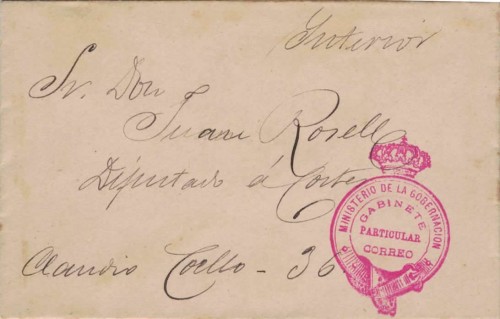 Interior
Sr. Don
Juan Rosell
Diputado á Cortes
Claudio Coello - 36
MINISTERIO DE LA GOBERNACION
GABINETE
PARTICULAR
CORREO